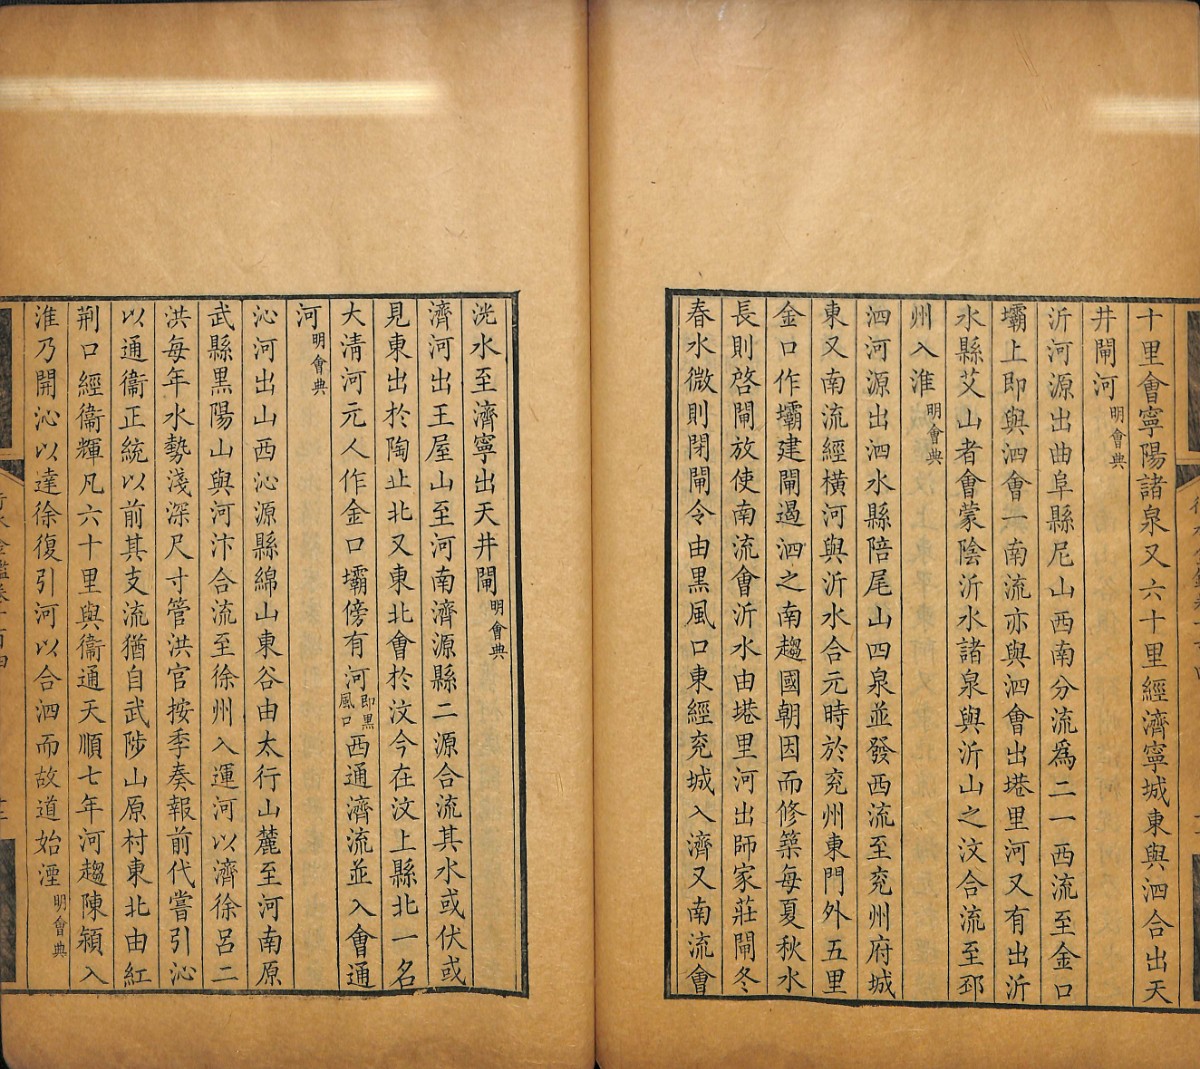 十里會寧陽諸泉又六十里經濟寧城東與泗合出天
井閘河明會典
沂河源出曲阜縣尼山西南分流爲二一西流至金口
壩上即與泗會一南流亦與泗會出塂里河又有出沂
水縣艾山者會蒙陰沂水諸泉與沂山之汶合流至邳
州入淮明會典
泗河源出泗水縣陪尾山四泉並發西流至兖州府城
東又南流經橫河與沂水合元時於兖州東門外五里
金口作壩建閘遏泗之南趨國朝因而修築每夏秋水
長則啓閘放使南流會沂水由塂里河出師家莊閘冬
春水微則閉閘令由黑風口東經兖城入濟又南流會
洸水至濟寧出天井閘明會典
濟河出王屋山至河南濟源縣二源合流其水或伏或
見東出於陶丘北又東北會於汶今在汶上縣北一名
大清河元人作金口壩傍有河即黑風口西通濟流並入會通
河明會典
沁河出山西沁源縣綿山東谷由太行山麓至河南原
武縣黑陽山與河汴合流至徐州入運河以濟徐呂二
洪每年水勢淺深尺寸管洪官按季奏報前代嘗引沁
以通衞正統以前其支流猶自武陟山原村東北由紅
荆口經衞輝凡六十里與衞通天順七年河趨陳潁入
淮乃開沁以達徐復引河以合泗而故道始湮明會典